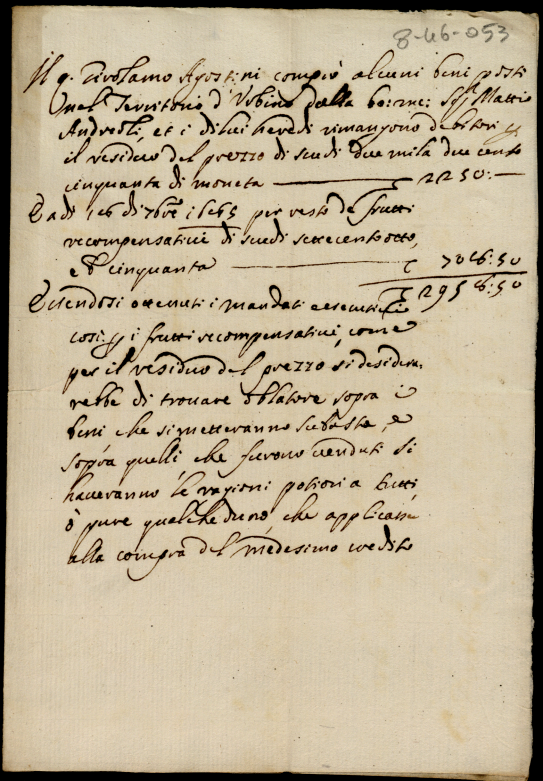 8-46-053
Il q. Girolamo Agostini comprò alcuni beni posti
nel Territorio d'Urbino dalla bo: me: Sig. Mattio
Andreoli, et i di lui heredi rimangono debitori p
il residuo del prezzo di scudi due mila due cento
cinquanta di moneta 2250:—
E a dì 16 di 7bre 1665 per resto de frutti
recompensativi di scudi settecento otto,
e b. cinquanta 708:50
2958:50
Essendosi ottenuti i mandati essecutivi
così p i frutti recompensativi, come
per il residuo del prezzo si desidera-
rebbe di trovare oblatore sopra i
beni che si metteranno subasta, e
sopra quelli, che furono venduti si
haveranno le ragioni potiori a tutti
ò pure qualcheduno, che applicasse
alla compra del medesimo credito